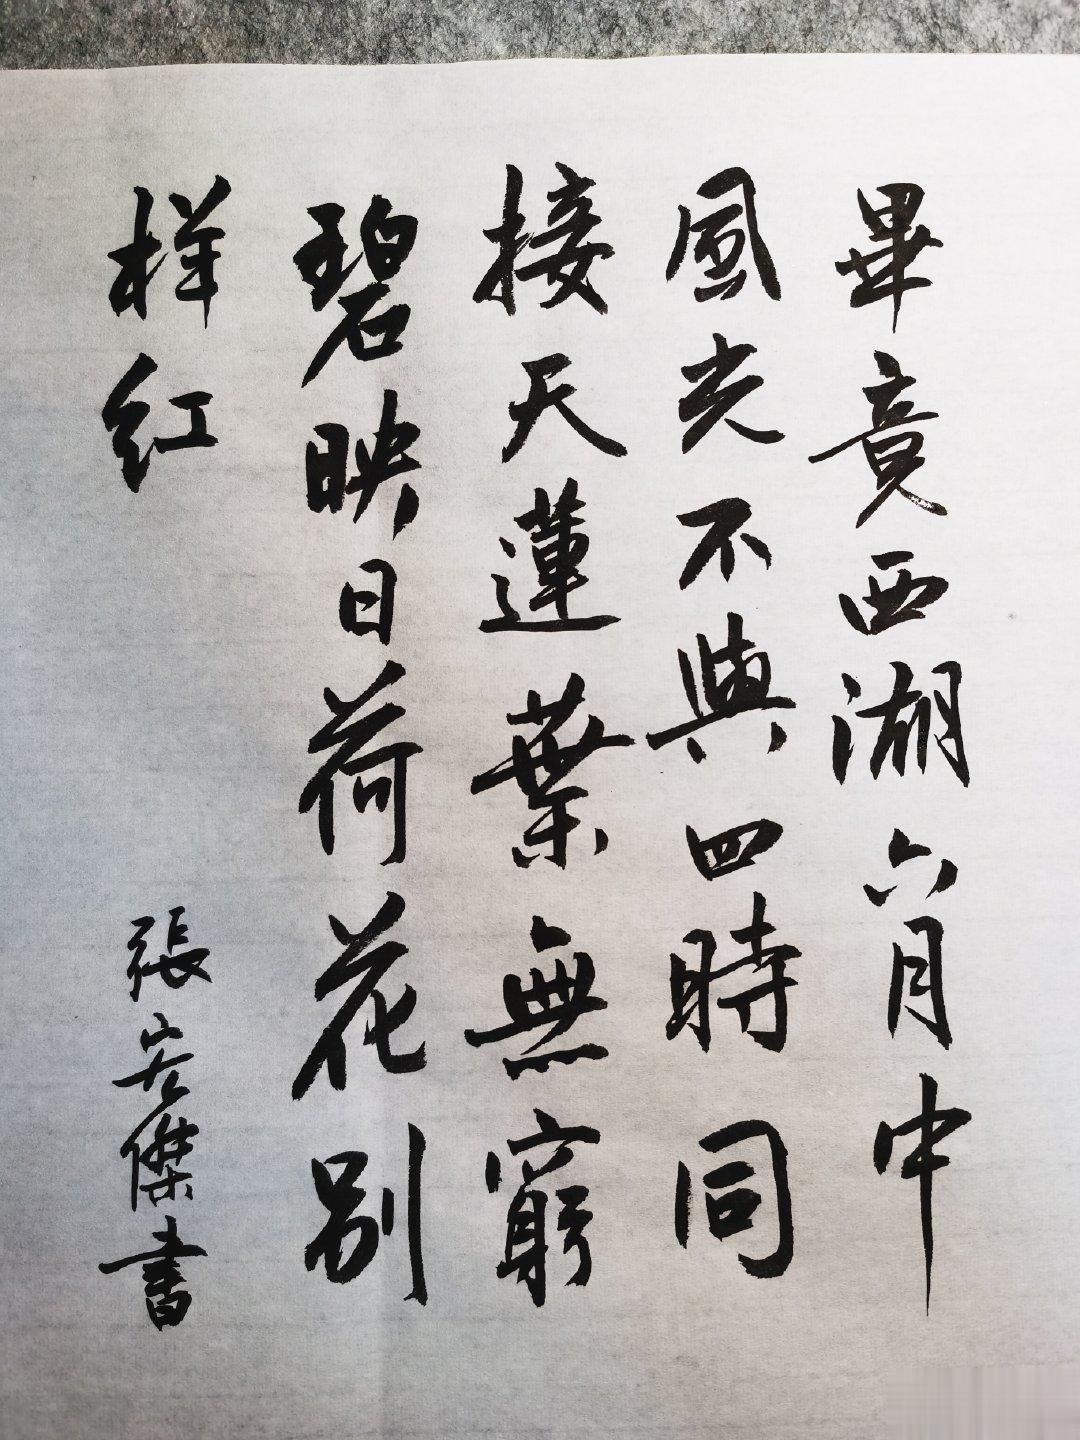 畢竟西湖六月中
風光不與四時同
接天蓮葉無窮
碧映日荷花别
样红
張宏傑書